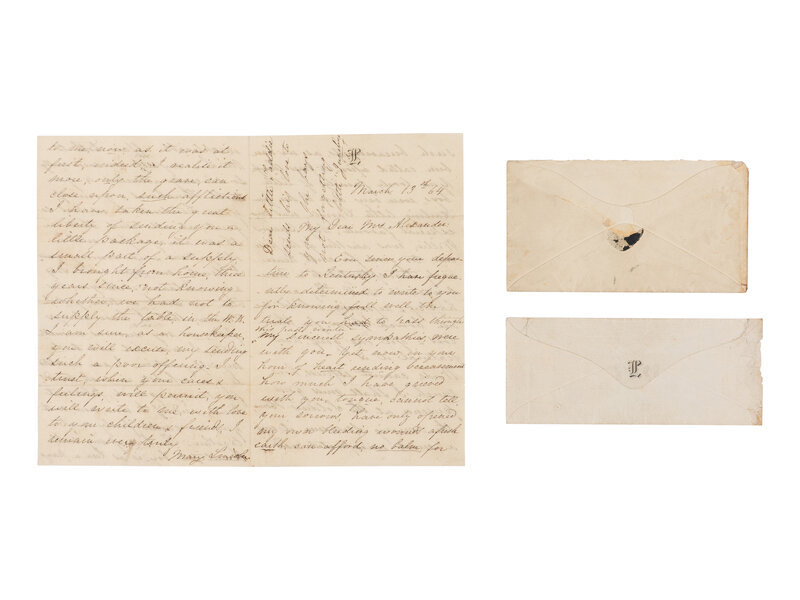 L
March 13th 64
My Dear Mrs Alexander
Ever since your depar
ture to Kentucky I have freque
ntly determined to write to you
for knowing full well, the
trials you had to pass through
My sincerest sympathies, were
with you. Yet, now in your
hour of heart rending bereavement
how much I have grieved
with you, tongue, cannot tell,
your sorrows, have only opened
my own bleeding wounds afresh
earth, can afford, no balm, for
to me now as it was at
first, indeed I realise it
more, only the grave, can
close upon, such afflictions
I have, taken the great
liberty of sending you a
little package, it was a
small part of a supply,
I brought from home, three
years since, not knowing
whether, we had not to
supply the table, in the W.H.
I am sure, as a housekeeper,
you will excuse, my sending
such a poor offering. I
trust, when your cares &
feelings, will permit, you
will write to me, with love
to your children & friend, I
remain very truly
Mary Lincoln
Dear little Taddie
sends his love to
the boys
L